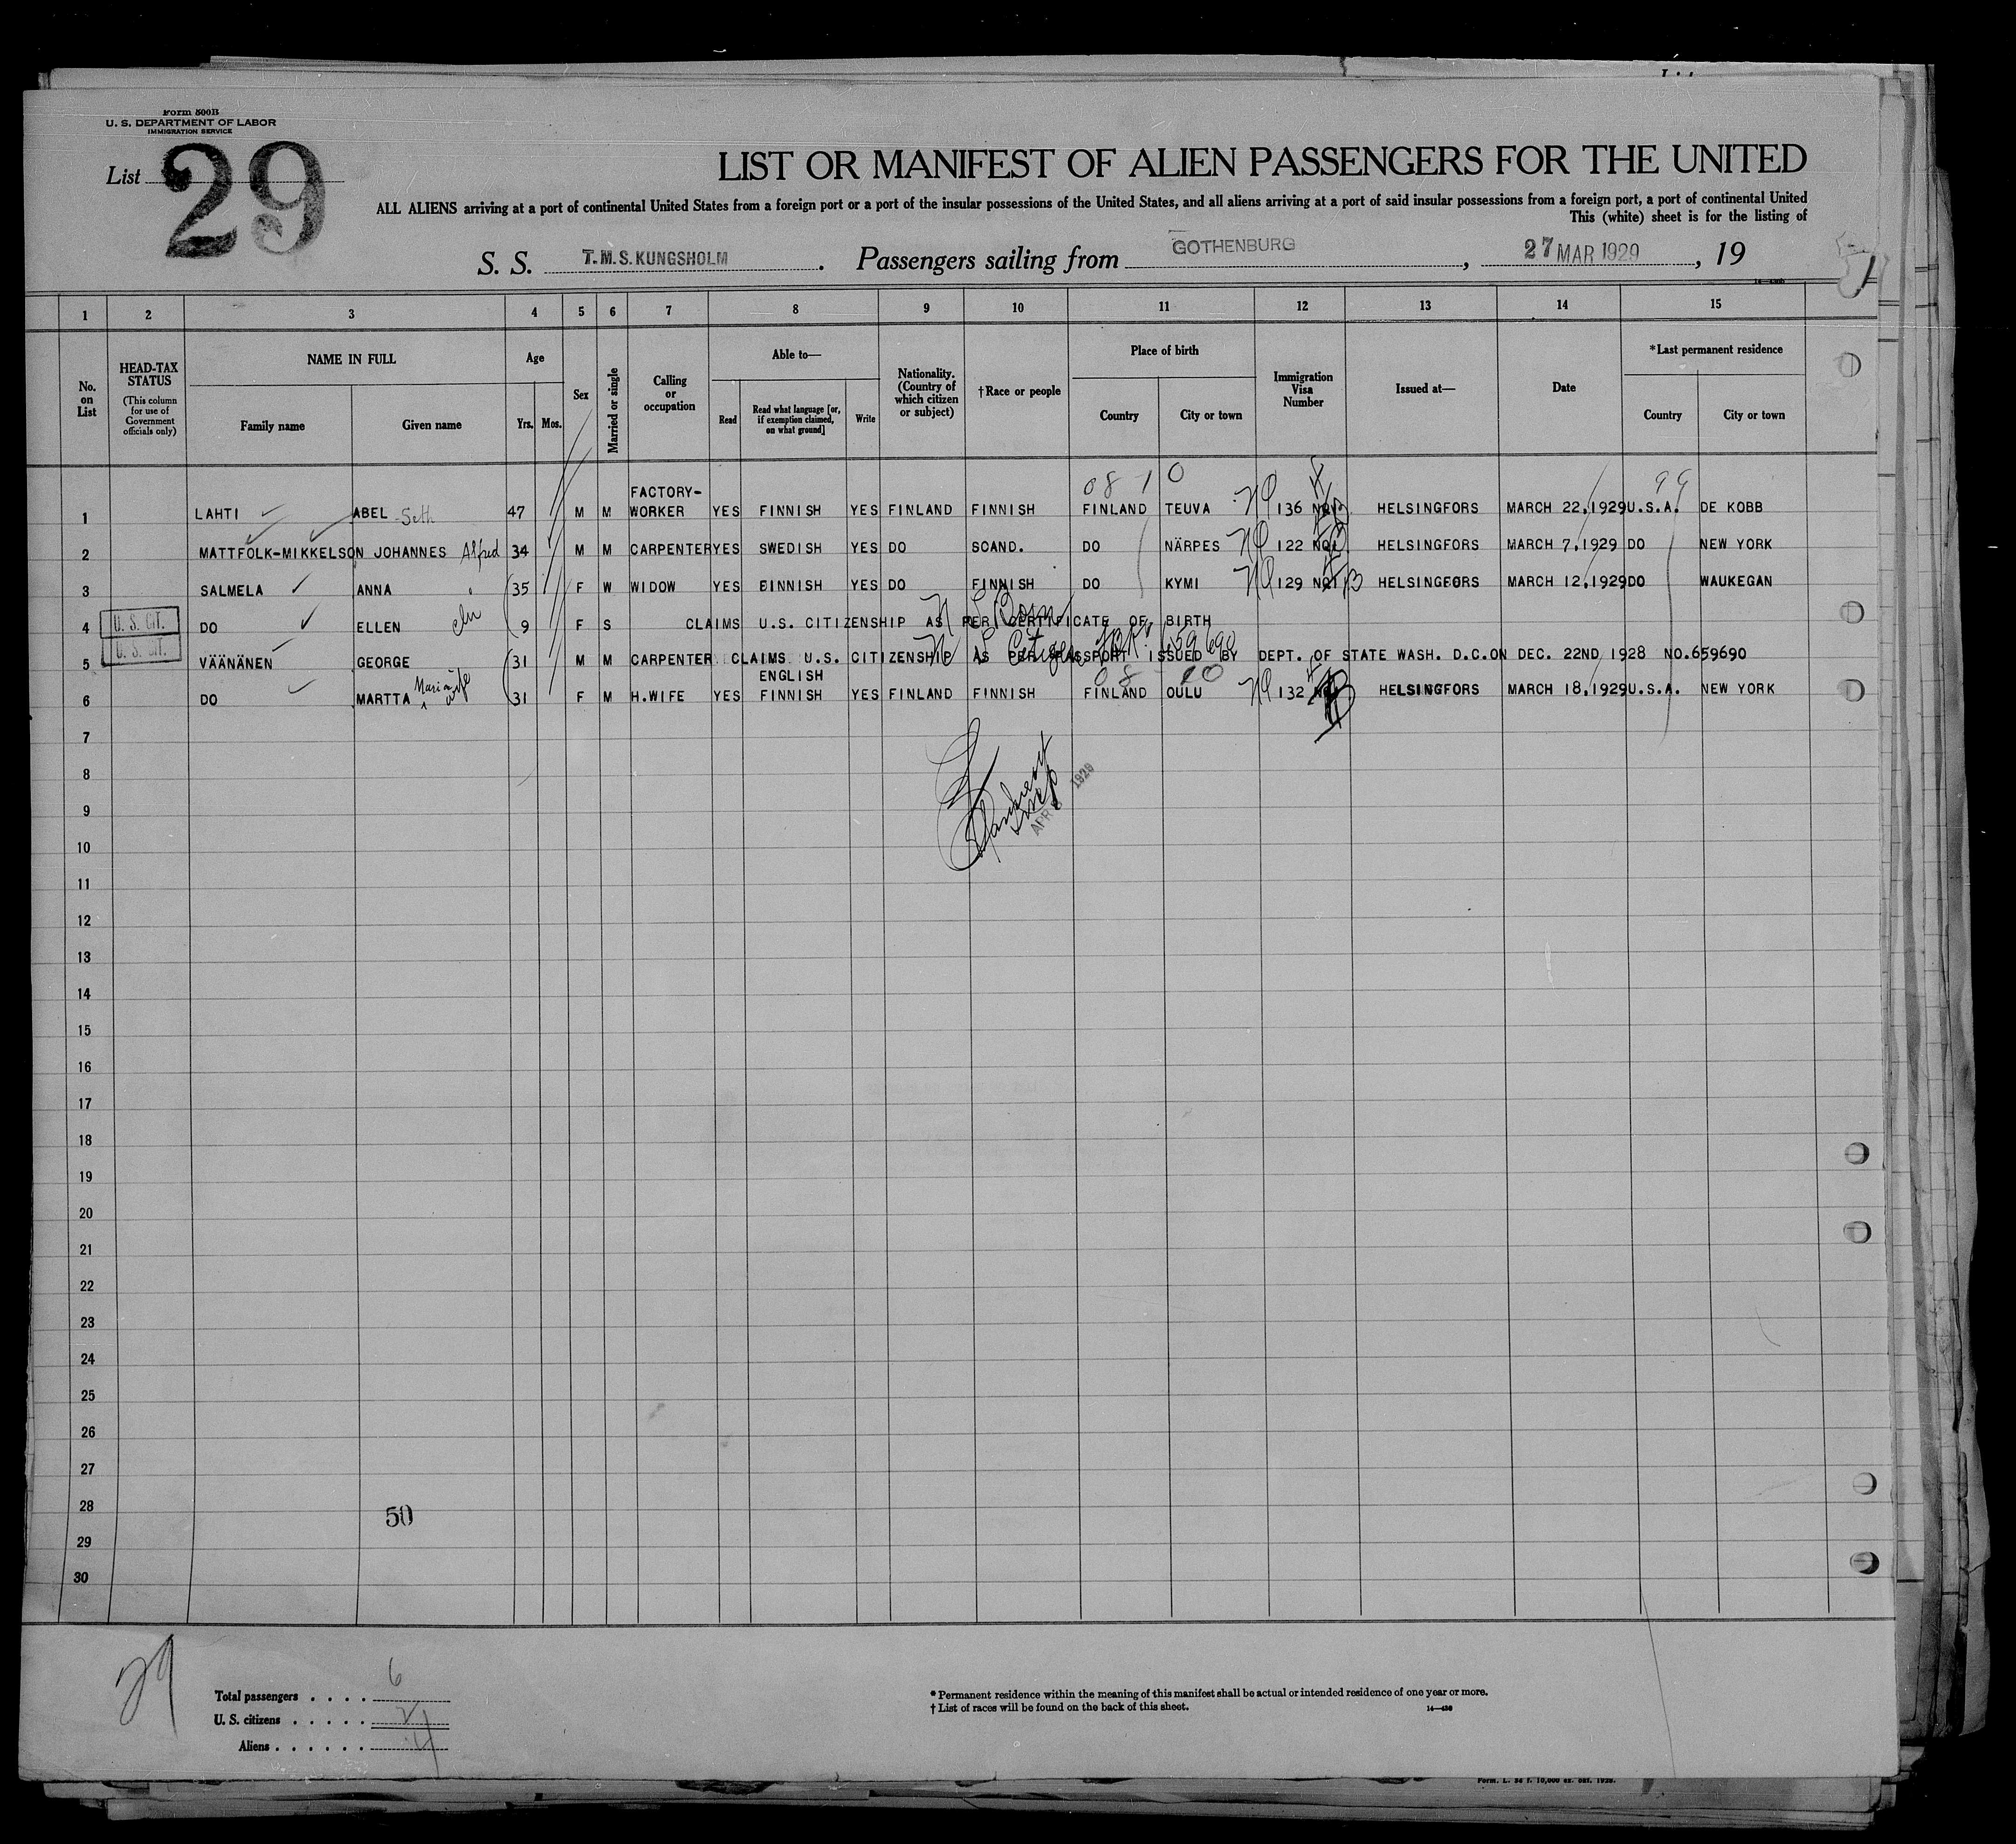 Form 500B
U. S. DEPARTMENT OF LABOR
IMMIGRATION SERVICE
List 29
LIST OR MANIFEST OF ALIEN PASSENGERS FOR THE UNITED
ALL ALIENS arriving at a port of continental United States from a foreign port or a port of the insular possessions of the United States, and all aliens arriving at a port of said insular possessions from a foreign port, a port of continental United
This (white) sheet is for the listing of
S. S. T.M.S. KUNGSHOLM . Passengers sailing from GOTHENBURG , 27 MAR 1929 , 19
1 2 3 4 5 6 7 8 9 10 11 12 13 14 15
No. on List
HEAD-TAX STATUS (This column for use of Government officials only)
NAME IN FULL
Family name Given name
Age
Yrs. Mos.
Sex
Married or single
Calling or occupation
Able to—
Read Read what language [or, if exemption claimed, on what ground] Write
Nationality. (Country of which citizen or subject)
†Race or people
Place of birth
Country City or town
Immigration Visa Number
Issued at—
Date
*Last permanent residence
Country City or town
08 10 99
1 LAHTI ABEL Seth 47 M M FACTORY-WORKER YES FINNISH YES FINLAND FINNISH FINLAND TEUVA 136 HELSINGFORS MARCH 22,1929 U.S.A. DE KOBB
2 MATTFOLK-MIKKELSON JOHANNES Alfred 34 M M CARPENTER YES SWEDISH YES DO SCAND. DO NÄRPES 122 HELSINGFORS MARCH 7,1929 DO NEW YORK
3 SALMELA ANNA 35 F W WIDOW YES FINNISH YES DO FINNISH DO KYMI 129 HELSINGFORS MARCH 12,1929 DO WAUKEGAN
4 U. S. CIT. DO ELLEN 9 F S CLAIMS U.S. CITIZENSHIP AS PER CERTIFICATE OF BIRTH
5 U. S. CIT. VÄÄNÄNEN GEORGE 31 M M CARPENTER CLAIMS U.S. CITIZENSHIP AS PER PASSPORT ISSUED BY DEPT. OF STATE WASH. D.C. ON DEC. 22ND 1928 NO.659690
6 DO MARTTA Maria wife 31 F M H.WIFE YES ENGLISH FINNISH YES FINLAND FINNISH FINLAND OULU 132 HELSINGFORS MARCH 18,1929 U.S.A. NEW YORK
7
8
APR 1929
9
10
11
12
13
14
15
16
17
18
19
20
21
22
23
24
25
26
27
28 50
29
30
29
Total passengers . . . . 6
U. S. citizens . . . . . 2
Aliens . . . . . . 4
* Permanent residence within the meaning of this manifest shall be actual or intended residence of one year or more.
† List of races will be found on the back of this sheet.